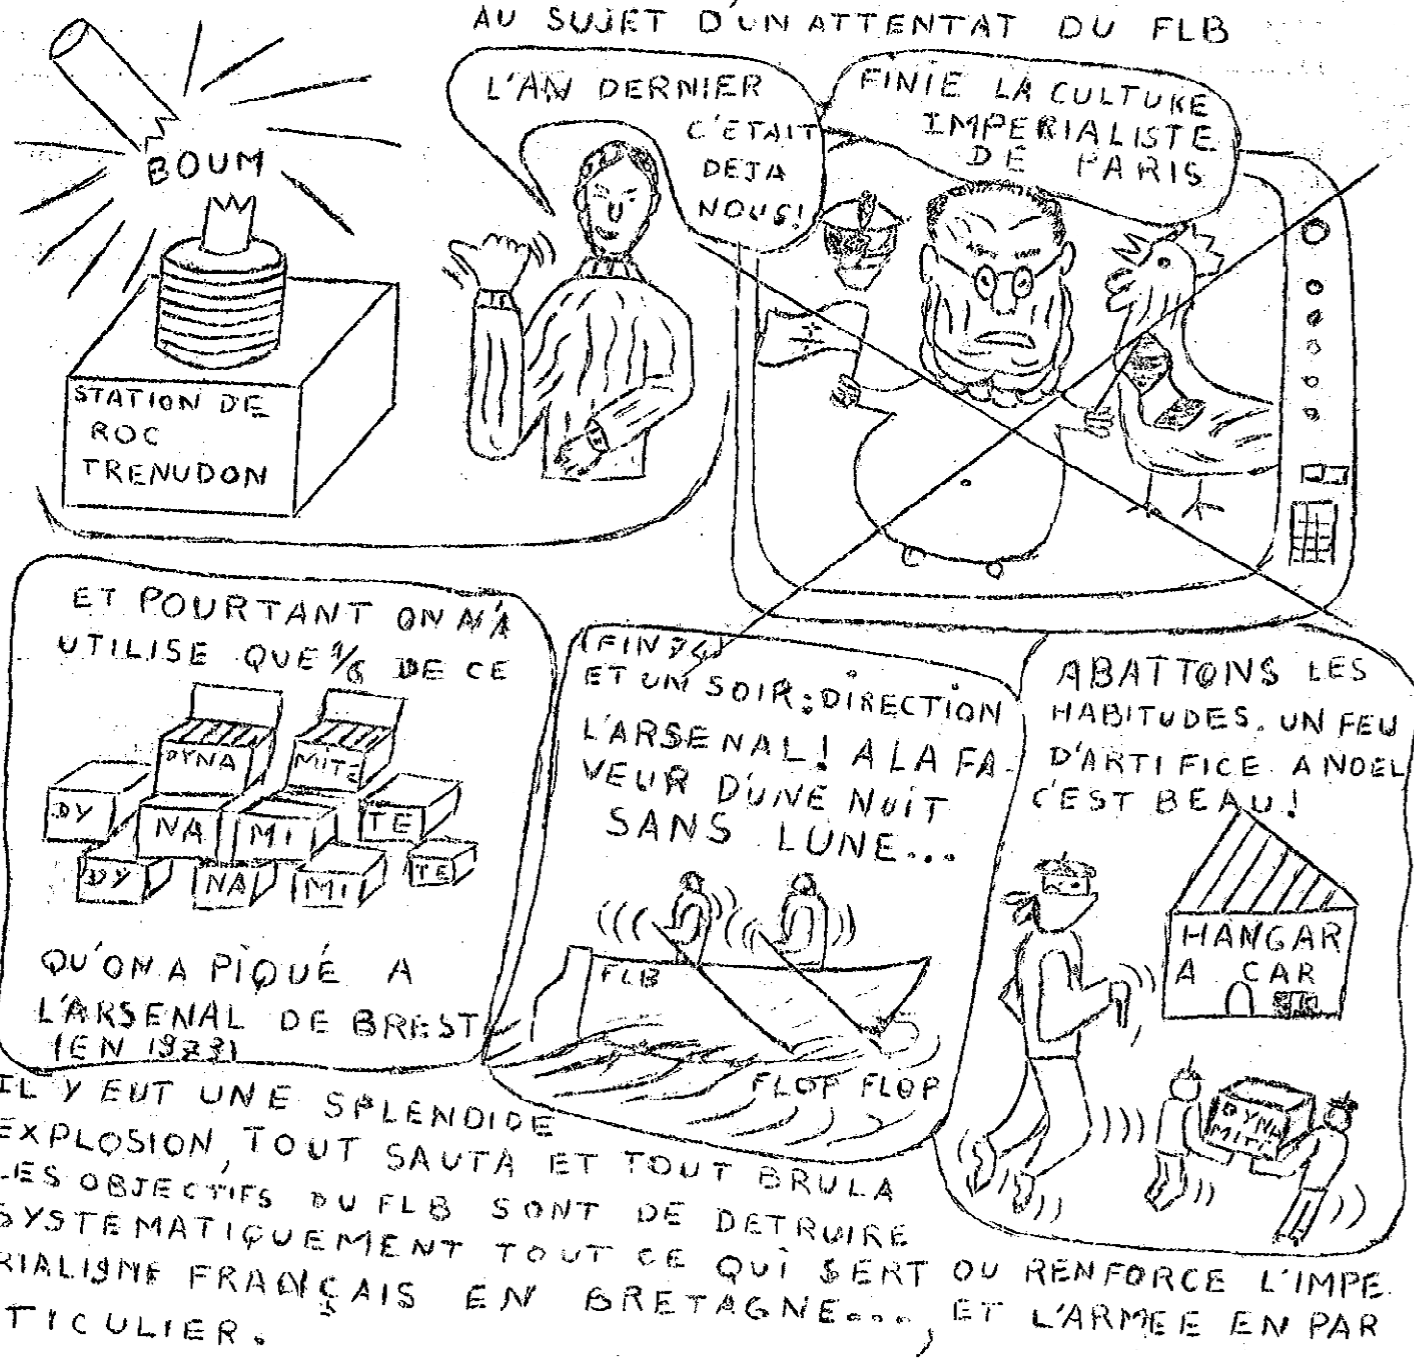 AU SUJET D'UN ATTENTAT DU FLB
BOUM
STATION DE
ROC
TRENUDON
L'AN DERNIER
C'ETAIT
DEJA
NOUS!
FINIE LA CULTURE
IMPERIALISTE
DE PARIS
ET POURTANT ON N'A
UTILISE QUE 1/6 DE CE
DYNA
MITE
DY
NA
MI
TE
DY
NA
MI
TE
QU'ON A PIQUÉ A
L'ARSENAL DE BREST
(EN 1973)
(FIN 74)
ET UN SOIR: DIRECTION
L'ARSENAL! A LA FA-
VEUR D'UNE NUIT
SANS LUNE...
FLB
FLOP FLOP
ABATTONS LES
HABITUDES. UN FEU
D'ARTIFICE A NOEL
C'EST BEAU!
HANGAR
A CAR
DYNA
MITE
IL Y EUT UNE SPLENDIDE
EXPLOSION, TOUT SAUTA ET TOUT BRULA
LES OBJECTIFS DU FLB SONT DE DETRUIRE
SYSTEMATIQUEMENT TOUT CE QUI SERT OU RENFORCE L'IMPE-
RIALISME FRANÇAIS EN BRETAGNE..., ET L'ARMEE EN PAR
TICULIER.